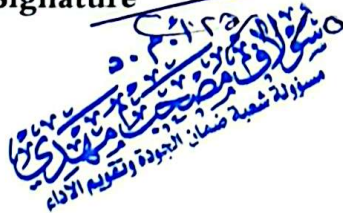 Signature
سولاف مصحب مهدي
مسؤولة شعبة ضمان الجودة وتقويم الأداء